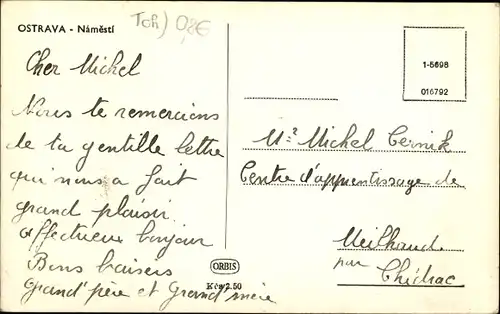 OSTRAVA - Náměstí
Toh) 0,8€
Cher Michel
Nous te remercions
de ta gentille lettre
qui nous a fait
grand plaisir.
affectueux bonjour
Bons baisers
Grand'père et Grand'mère
ORBIS
Kčs 2.50
1-5698
016792
Mr Michel Cernik
Centre d'apprentissage de
Meilhaud
par Chidrac